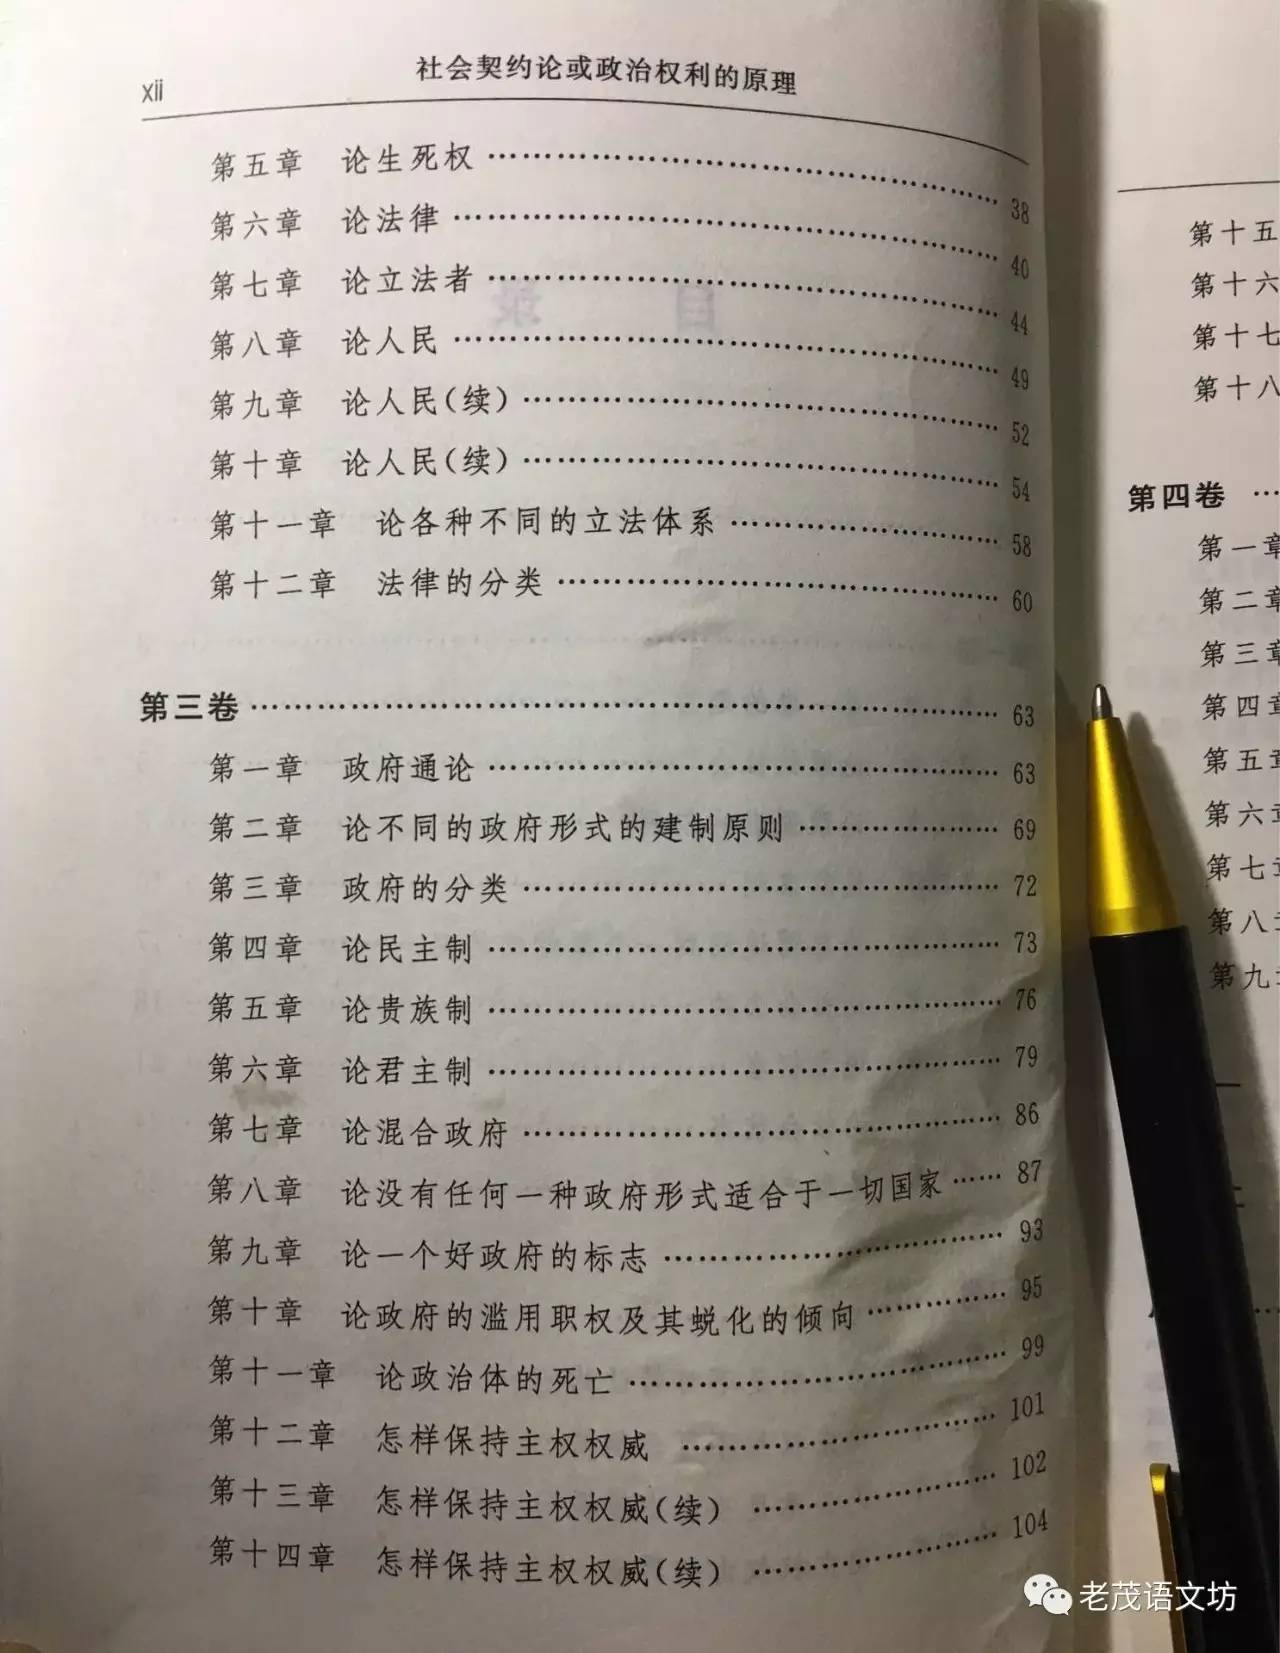 xii
社会契约论或政治权利的原理
第五章 论生死权 …… 38
第六章 论法律 …… 40
第七章 论立法者 …… 44
第八章 论人民 …… 49
第九章 论人民(续) …… 52
第十章 论人民(续) …… 54
第十一章 论各种不同的立法体系 …… 58
第十二章 法律的分类 …… 60
第三卷 …… 63
第一章 政府通论 …… 63
第二章 论不同的政府形式的建制原则 …… 69
第三章 政府的分类 …… 72
第四章 论民主制 …… 73
第五章 论贵族制 …… 76
第六章 论君主制 …… 79
第七章 论混合政府 …… 86
第八章 论没有任何一种政府形式适合于一切国家 …… 87
第九章 论一个好政府的标志 …… 93
第十章 论政府的滥用职权及其蜕化的倾向 …… 95
第十一章 论政治体的死亡 …… 99
第十二章 怎样保持主权权威 …… 101
第十三章 怎样保持主权权威(续) …… 102
第十四章 怎样保持主权权威(续) …… 104
第十五
第十六
第十七
第十八
第四卷 …
第一章
第二章
第三章
第四章
第五章
第六章
第七章
第八
第九
老茂语文坊